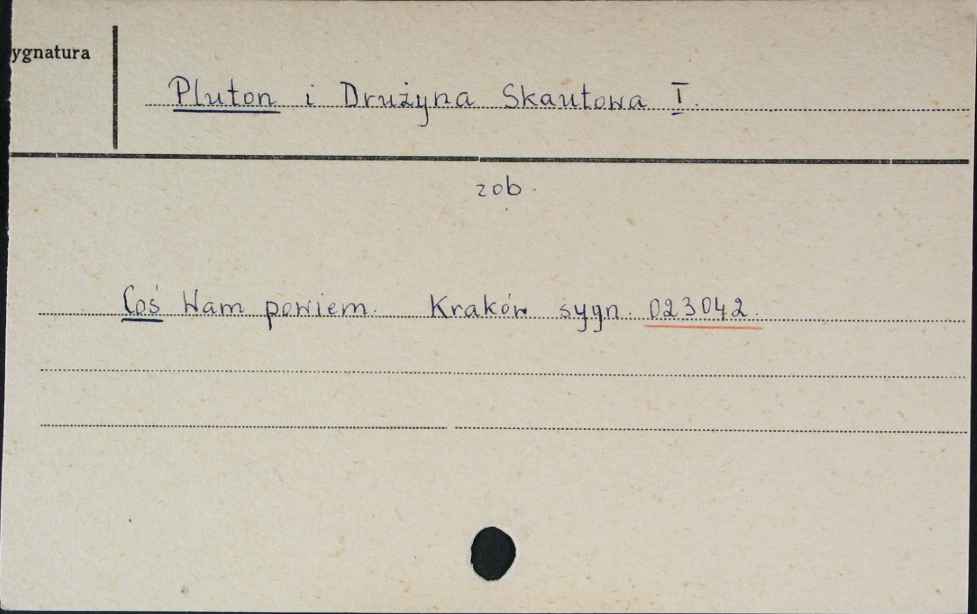 ygnatura
Pluton i Drużyna Skautowa I.
zob.
Coś Wam powiem. Kraków sygn. 023042.